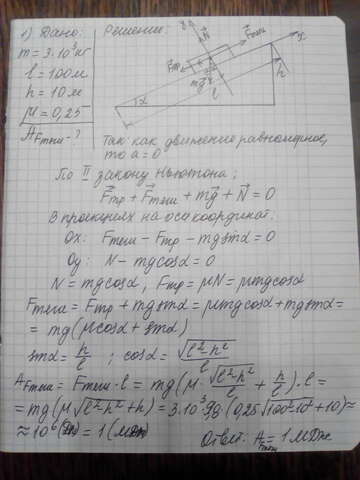 1) Дано:
Решение:
m = 3·10³ кг
l = 100 м
h = 10 м
μ = 0,25
A Fтяги - ?
y
N
x
Fтяги
Fтр
mg
α
l
h
Так как движение равномерное,
то a = 0
По II закону Ньютона:
Fтр + Fтяги + mg + N = 0
В проекциях на оси координат:
Ox: Fтяги - Fтр - mg sinα = 0
Oy: N - mg cosα = 0
N = mg cosα, Fтр = μN = μmg cosα
Fтяги = Fтр + mg sinα = μmg cosα + mg sinα =
= mg (μ cosα + sinα)
sinα = h/l ; cosα = √(l²-h²)/l
A Fтяги = Fтяги · l = mg (μ · √(l²-h²)/l + h/l) · l =
= mg (μ √(l²-h²) + h) = 3·10³ · 9,8 · (0,25 √(100²-10²) + 10) ≈
≈ 10⁶ (Дж) = 1 (МДж)
Ответ: A Fтяги = 1 МДж